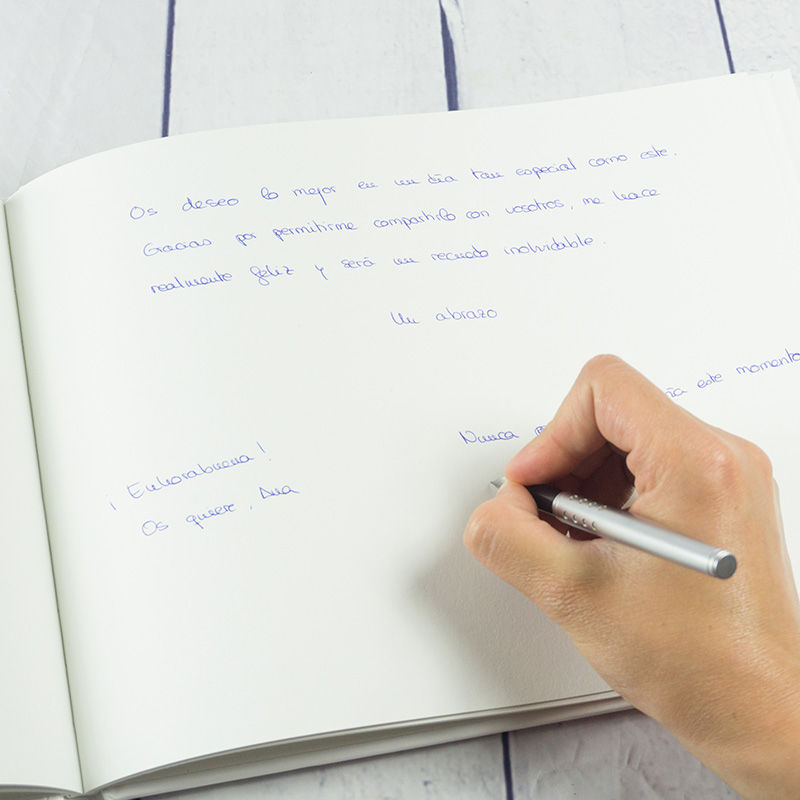 Os deseo lo mejor en un día tan especial como este.
Gracias por permitirme compartirlo con vosotros, me hace
realmente feliz y será un recuerdo inolvidable.
Un abrazo
Nunca este momento
¡Enhorabuena!
Os quiere, Ana